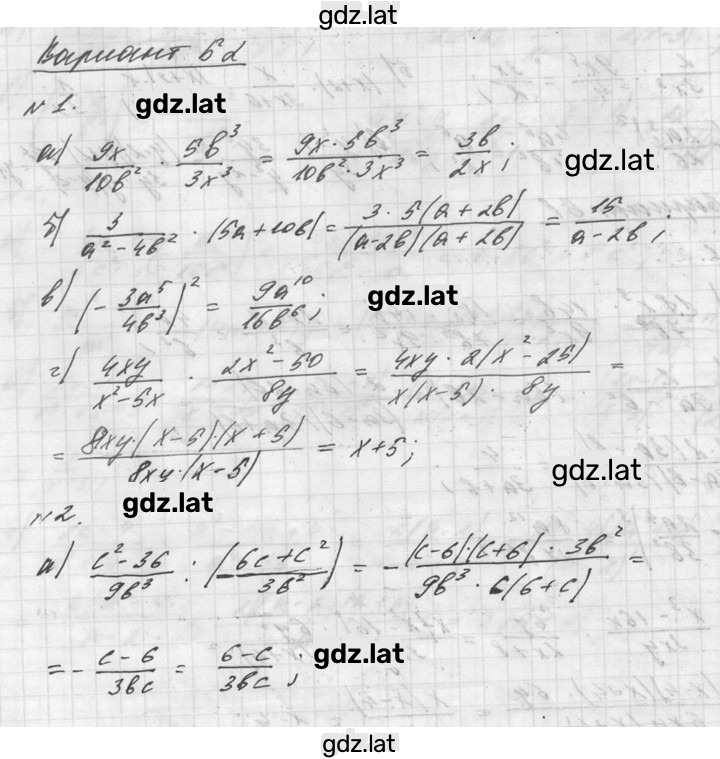 gdz.lat
Вариант 6 а
№ 1. gdz.lat
а) 9x/10b² · 5b³/3x³ = 9x · 5b³/10b² · 3x³ = 3b/2x ; gdz.lat
б) 3/a² − 4b² · (5a + 10b) = 3 · 5(a + 2b)/(a − 2b)(a + 2b) = 15/a − 2b ;
в) (− 3a⁵/4b³)² = 9a¹⁰/16b⁶ ; gdz.lat
г) 4xy/x² − 5x · 2x² − 50/8y = 4xy · 2(x² − 25)/x(x − 5) · 8y =
= 8xy · (x − 5) · (x + 5)/8xy · (x − 5) = x + 5 ; gdz.lat
№ 2. gdz.lat
а) c² − 36/9b³ : (− 6c + c²/3b²) = − (c − 6) · (c + 6) · 3b²/9b³ · c(6 + c) =
= − c − 6/3bc = 6 − c/3bc ; gdz.lat
gdz.lat